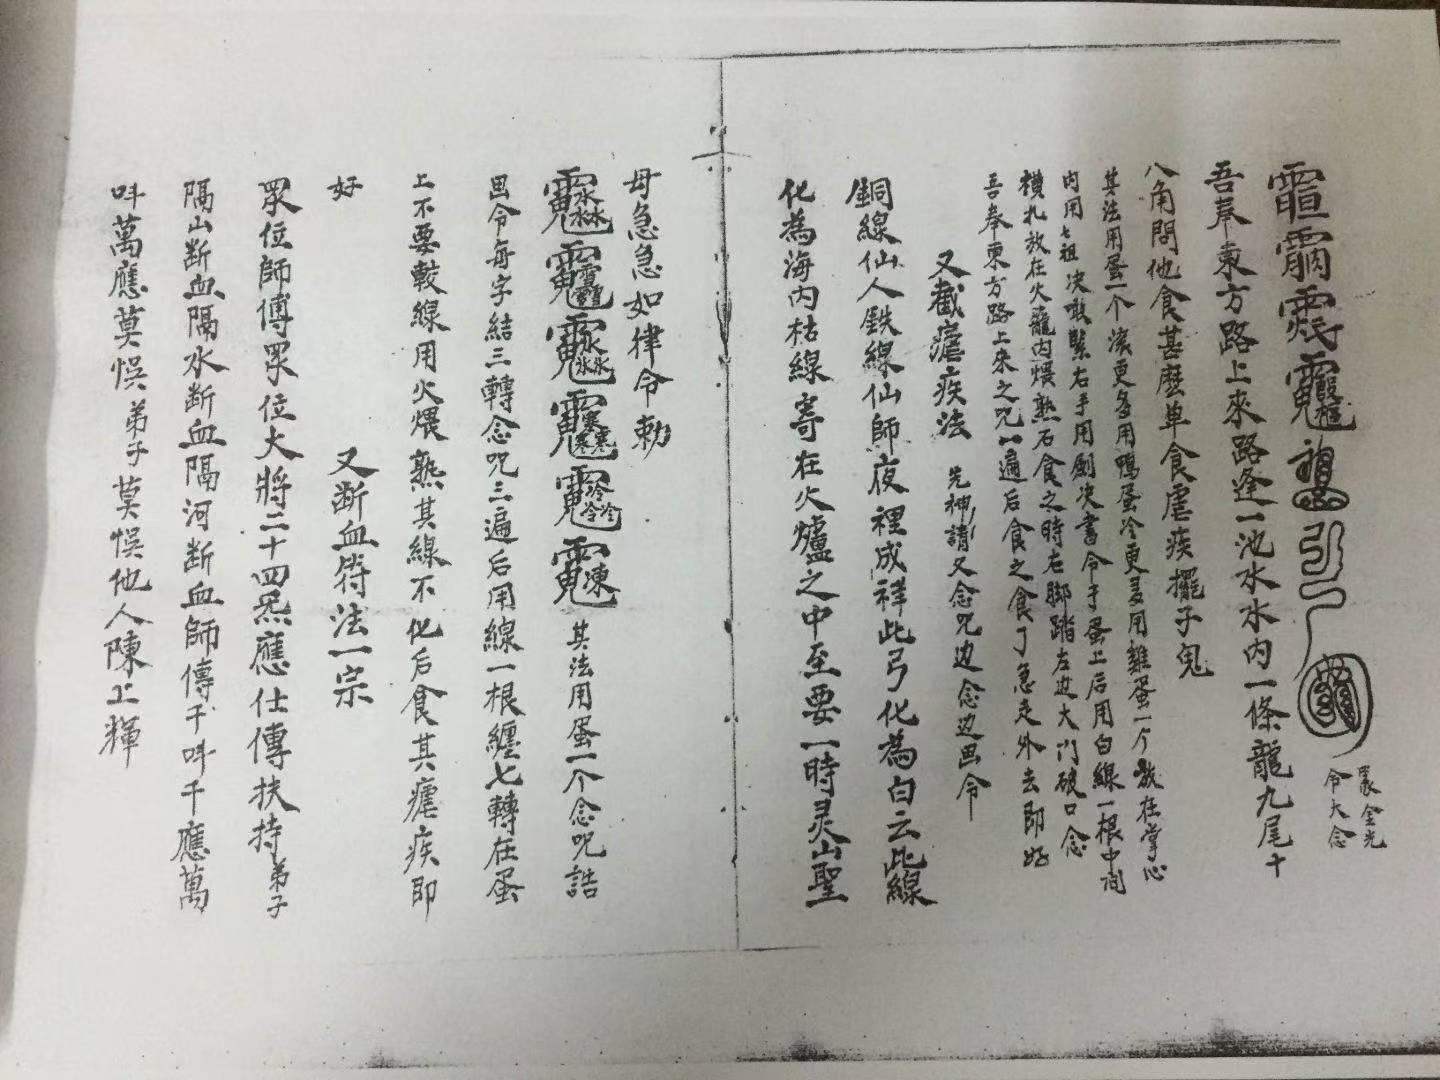 罡金光
令大念
吾奉東方路上來路逢一池水水内一條龍九尾十
八角問他食甚麽单食虐疾擺子鬼
其法用蛋一个滚更多用鴨蛋冷更多用雞蛋一个放在掌心
内用七祖决敢緊右手用劍决書令于蛋上后用白線一根中间
横扎放在火籠内煨熟后食之時左脚踏左边大门破口念
吾奉東方路上來之咒八遍后食之食了急走外去即好
又截瘧疾法 先神請又念咒边念边畫令
銅線仙人鉄線仙師夜裡成祥此弓化為白云此線
化為海内枯線寄在火爐之中至要一時灵山聖
母急急如律令勅
其法用蛋一个念咒語
畫令每字結三轉念咒三遍后用線一根纏七轉在蛋
上不要較線用火煨熟其線不化后食其瘧疾即
好
又断血符法一宗
眾位師傅眾位大將二十四炁應仕傳扶持弟子
隔山断血隔水断血隔河断血師傅千呌千應萬
呌萬應莫悮弟子莫悮他人陳上輝